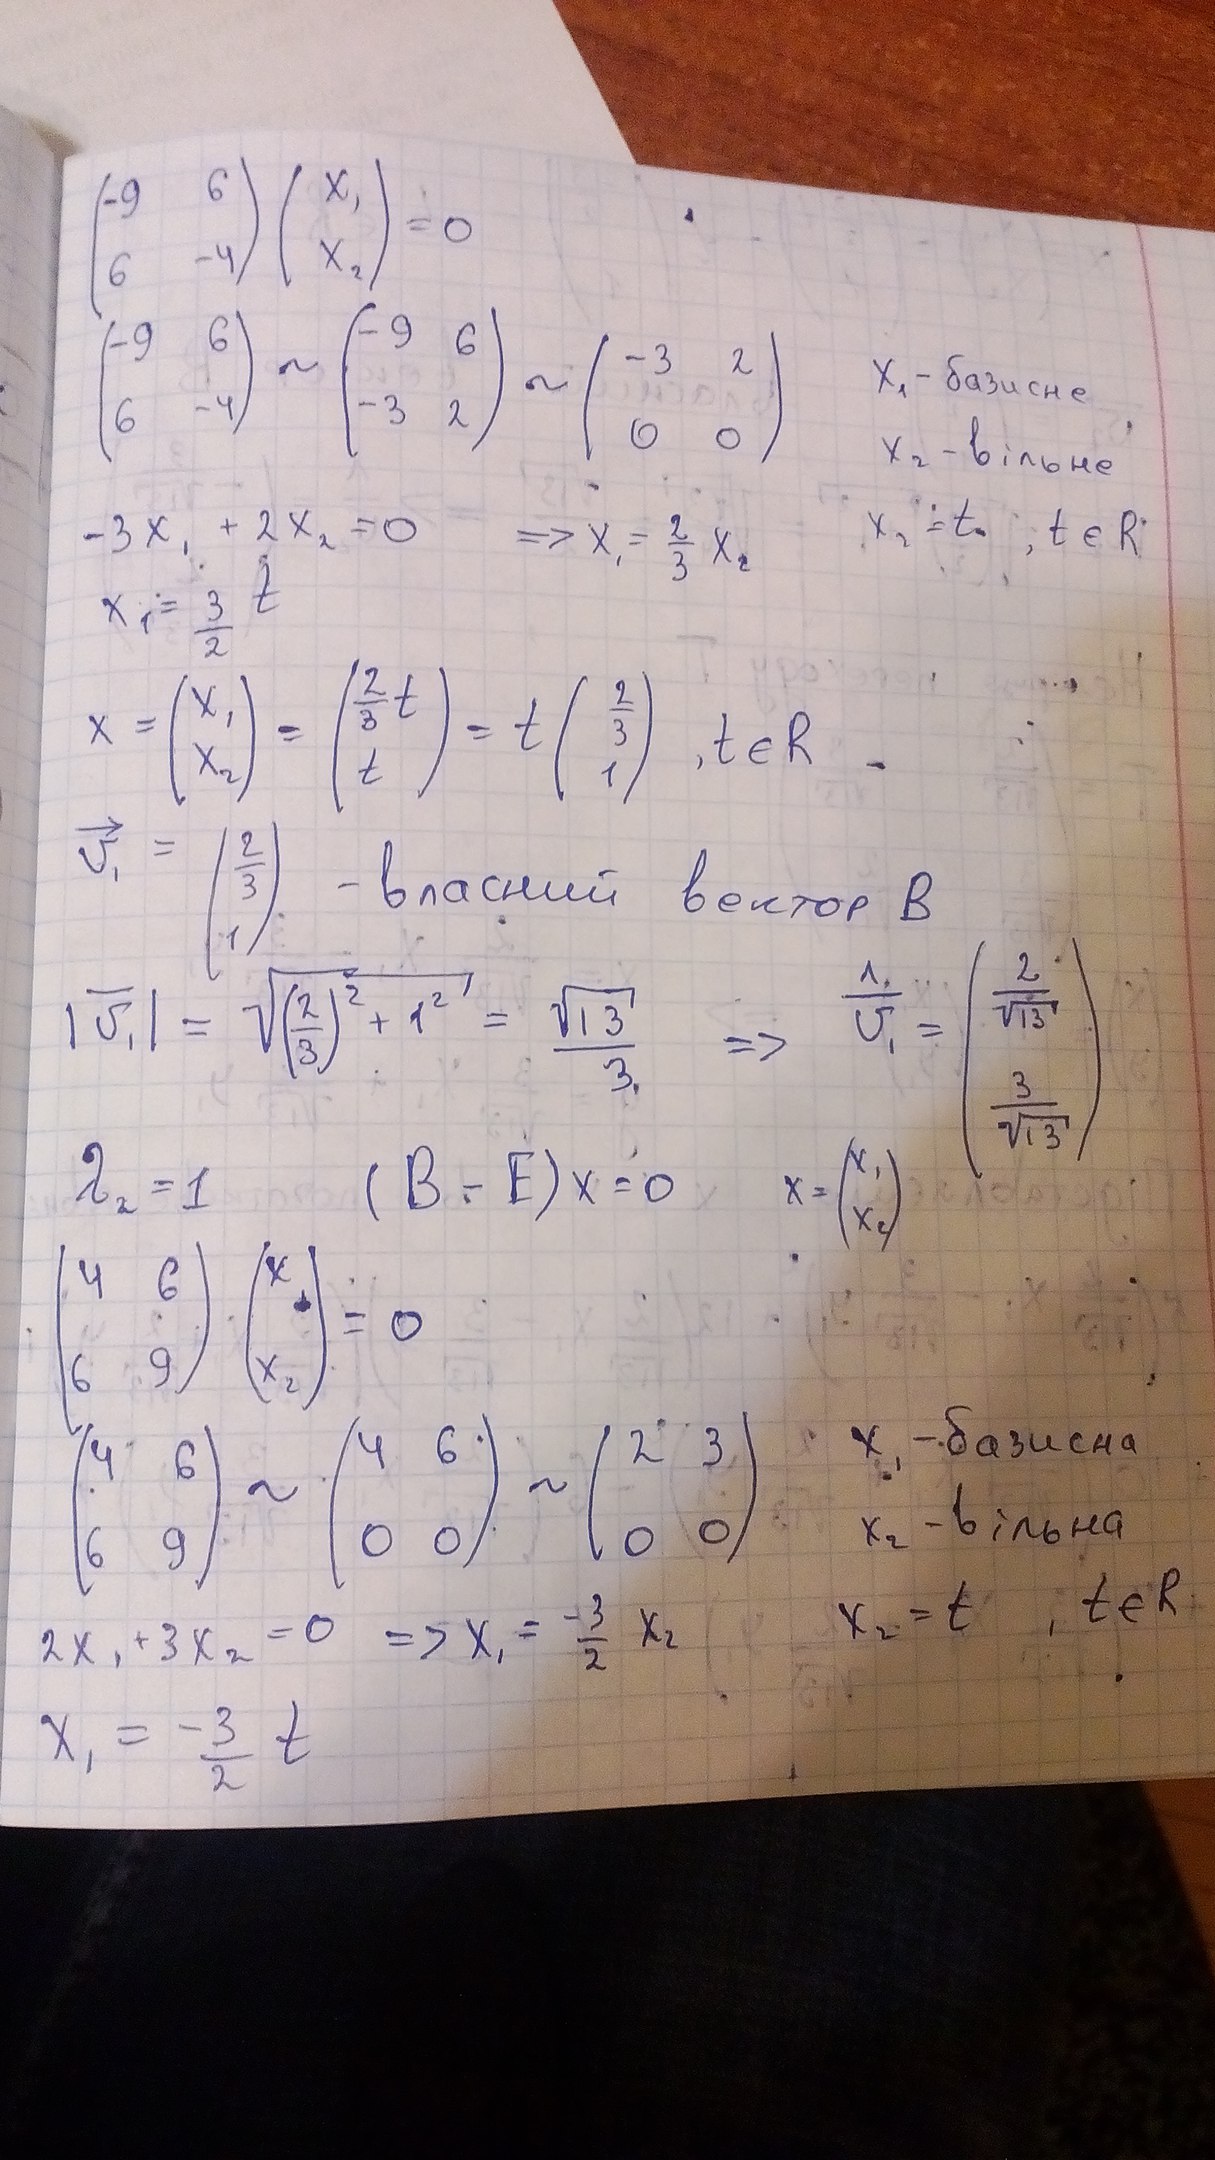 (-9 6; 6 -4) (x₁; x₂) = 0
(-9 6; 6 -4) ~ (-9 6; -3 2) ~ (-3 2; 0 0) x₁ - базисне
x₂ - вільне
-3x₁ + 2x₂ = 0 => x₁ = 2/3 x₂ x₂ = t , t ∈ R
x₁ = 3/2 t
x = (x₁; x₂) = (2/3 t; t) = t (2/3; 1) , t ∈ R
v₁ = (2/3; 1) - власний вектор B
|v₁| = √((2/3)² + 1²) = √13/3 => 1/v₁ = (2/√13; 3/√13)
λ₂ = 1 (B - E) x = 0 x = (x₁; x₂)
(4 6; 6 9) · (x₁; x₂) = 0
(4 6; 6 9) ~ (4 6; 0 0) ~ (2 3; 0 0) x₁ - базисна
x₂ - вільна
2x₁ + 3x₂ = 0 => x₁ = -3/2 x₂ x₂ = t , t ∈ R
x₁ = -3/2 t